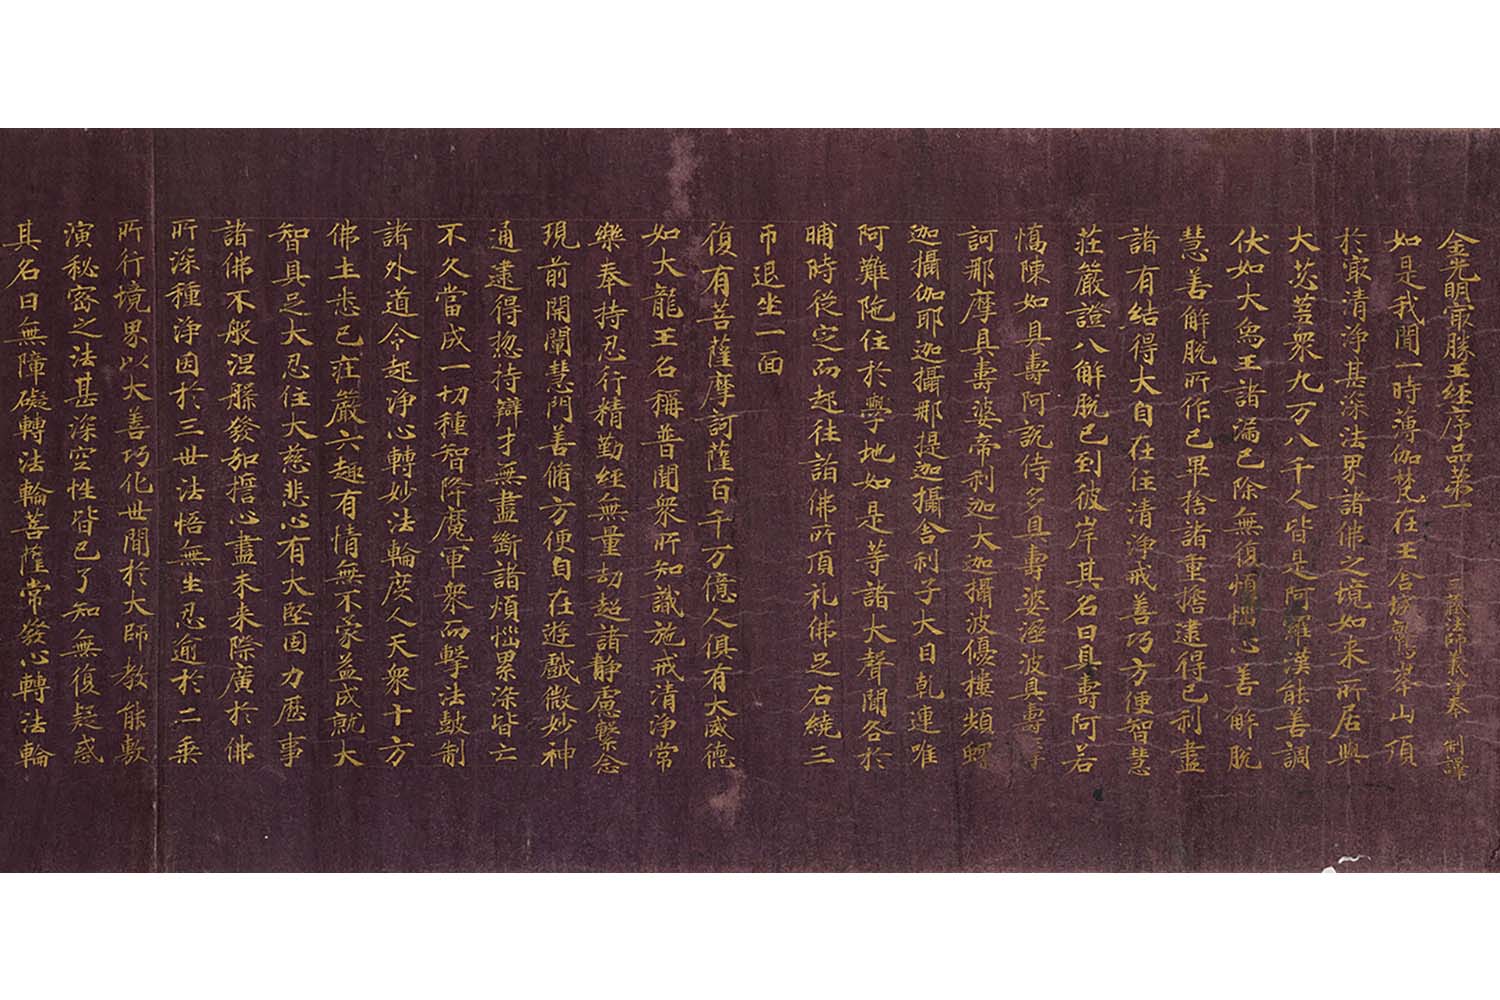 金光明最勝王經序品第一 三藏法師義淨奉 制譯
如是我聞一時薄伽梵在王舍城鷲峯山頂
於最清淨甚深法界諸佛之境如來所居與
大苾蒭衆九万八千人皆是阿羅漢能善調
伏如大烏王諸漏已除無復煩惱心善解脫
慧善解脫所作已畢捨諸重擔逮得己利盡
諸有結得大自在住清淨戒善巧方便智慧
莊嚴證八解脫已到彼岸其名曰具壽阿若
憍陳如具壽阿說侍多具壽婆溼波具壽摩
訶那摩具壽婆帝利迦大迦攝波優樓頻螺
迦攝伽耶迦攝那提迦攝舍利子大目乹連唯
阿難陁住於學地如是等諸大聲聞各於
晡時從定而起往詣佛所頂礼佛足右繞三
帀退坐一面
復有菩薩摩訶薩百千万億人俱有大威德
如大龍王名稱普聞衆所知識施戒清淨常
樂奉持忍行精勤經無量劫超諸靜慮繫念
現前開闡慧門善脩方便自在遊戲微妙神
通逮得惣持辯才無盡斷諸煩惱累染皆亡
不久當成一切種智降魔軍衆而擊法鼓制
諸外道令起淨心轉妙法輪度人天衆十方
佛土悉已莊嚴六趣有情無不蒙益成就大
智具足大忍住大慈悲心有大堅固力歷事
諸佛不般涅槃發弘誓心盡未來際廣於佛
所深種淨因於三世法悟無生忍逾於二乘
所行境界以大善巧化世間於大師教能敷
演秘密之法甚深空性皆已了知無復疑惑
其名曰無障礙轉法輪菩薩常發心轉法輪